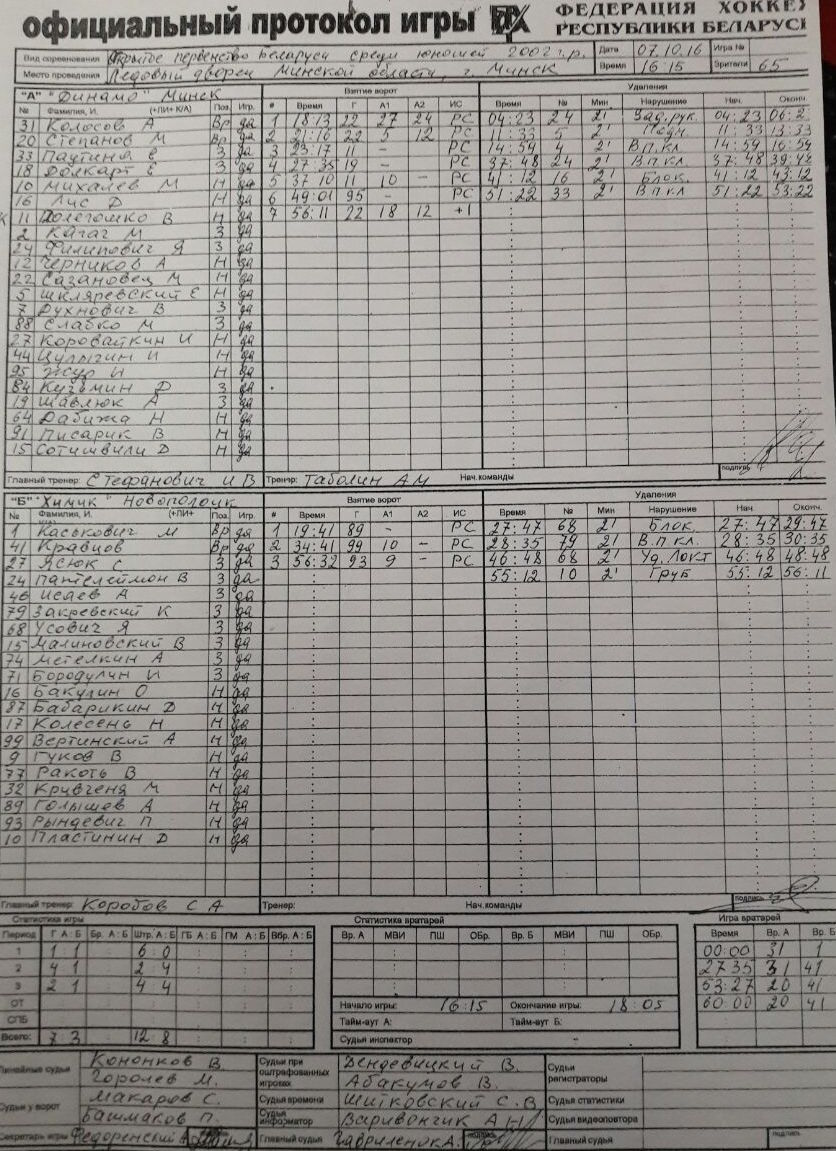 официальный протокол игры
ФЕДЕРАЦИЯ ХОККЕЯ РЕСПУБЛИКИ БЕЛАРУСЬ
Вид соревнования Открытое первенство Беларуси среди юношей 2002 г.р. Дата 07.10.16 Игра №
Место проведения Ледовый дворец Минской области, г. Минск Время 16:15 Зрители 65
"А" "Динамо" Минск Взятие ворот Удаления
№ Фамилия, И. (+ПИ+ К/А) Поз. Игр. # Время Г А1 А2 ИС Время № Мин Нарушение Нач. Оконч.
31 Колосов А Вр да 1 18:13 22 27 24 РС 04:23 24 2' Зад.рук. 04:23 06:2
20 Степанов М Вр да 2 21:16 22 5 12 РС 11:33 5 2' Подн. 11:33 13:33
33 Паутина Е З да 3 23:17 11 - РС 14:59 4 2' В.п.кл. 14:59 16:59
18 Долкарт Е З да 4 27:35 19 - РС 37:48 24 2' В.п.кл. 37:48 39:48
10 Михалев М Н да 5 37:10 11 10 - РС 41:12 16 2' Блок. 41:12 43:12
16 Лис Д Н да 6 49:01 95 - РС 51:22 33 2' В.п.кл 51:22 53:22
К 11 Долегошко В Н да 7 56:11 22 18 12 +1
2 Кагач М З да
24 Филипович Я З да
12 Черников А Н да
22 Сазановец М Н да
5 Шкляревский Е Н да
7 Духнович В З да
88 Слабко М З да
27 Коровайкин И Н да
44 Цулыгин И Н да
95 Жур И Н да
84 Кузьмин Д З да
19 Шавлюк А З да
64 Дабижа Н Н да
91 Писарик В Н да
15 Сотишвили Д Н да
Главный тренер: Стефанович И В Тренер: Таболин А М Нач.команды подпись
"Б" "Химик" Новополоцк Взятие ворот Удаления
№ Фамилия, И. (+ПИ+ Поз. Игр. # Время Г А1 А2 ИС Время № Мин Нарушение Нач Оконч.
1 Каськович М Вр да 1 19:41 89 - РС 27:47 68 2' Блок. 27:47 29:47
41 Кравцов Вр да 2 34:41 99 10 - РС 28:35 79 2' В.п.кл. 28:35 30:35
27 Ясюк С З да 3 56:32 93 9 - РС 46:48 68 2' Уд.Локт 46:48 48:48
24 Пантелеймон В З да 55:12 10 2' Груб 55:12 56:11
46 Исаев А З да
79 Закревский К З да
68 Усович Я З да
15 Малиновский В З да
74 Метелкин А З да
71 Бородулин И З да
16 Бакулин О Н да
87 Бабарикин Д Н да
17 Колесень Н Н да
99 Вертинский А Н да
9 Гуков В Н да
77 Ракоть В Н да
32 Кривченя М Н да
89 Голышев А Н да
93 Рындевич П Н да
10 Пластинин Д Н да
Главный тренер: Коробов С А Тренер: Нач.команды подпись
Статистика игры Статистика вратарей Игра вратарей
Период Г А : Б Бр. А : Б Штр. А : Б ГБ А : Б ГМ А : Б Вбр. А : Б Вр. А МВИ ПШ ОБр. Вр. Б МВИ ПШ ОБр. Время Вр. А Вр. Б
1 1 1 6 : 0 00:00 31 1
2 4 1 2 4 27 35 31 41
3 2 1 4 4 53:27 20 41
ОТ Начало игры: 16:15 Окончание игры: 18:05 60:00 20 41
СПБ Тайм-аут А: Тайм-аут Б:
Всего: 7 3 12 8 Судья инспектор
Линейные судьи Кононков В. Судьи при оштрафованных игроках Дендевицкий В. Судьи регистраторы
Горолев М. Абакумов В.
Судьи у ворот Макаров С. Судья времени Шитковский С.В Судья статистики
Башмаков П. Судья информатор Варивончик А Н Судья видеоповтора
Секретарь игры Федоренский Главный судья Гавриленок А. подпись Главный судья подпись